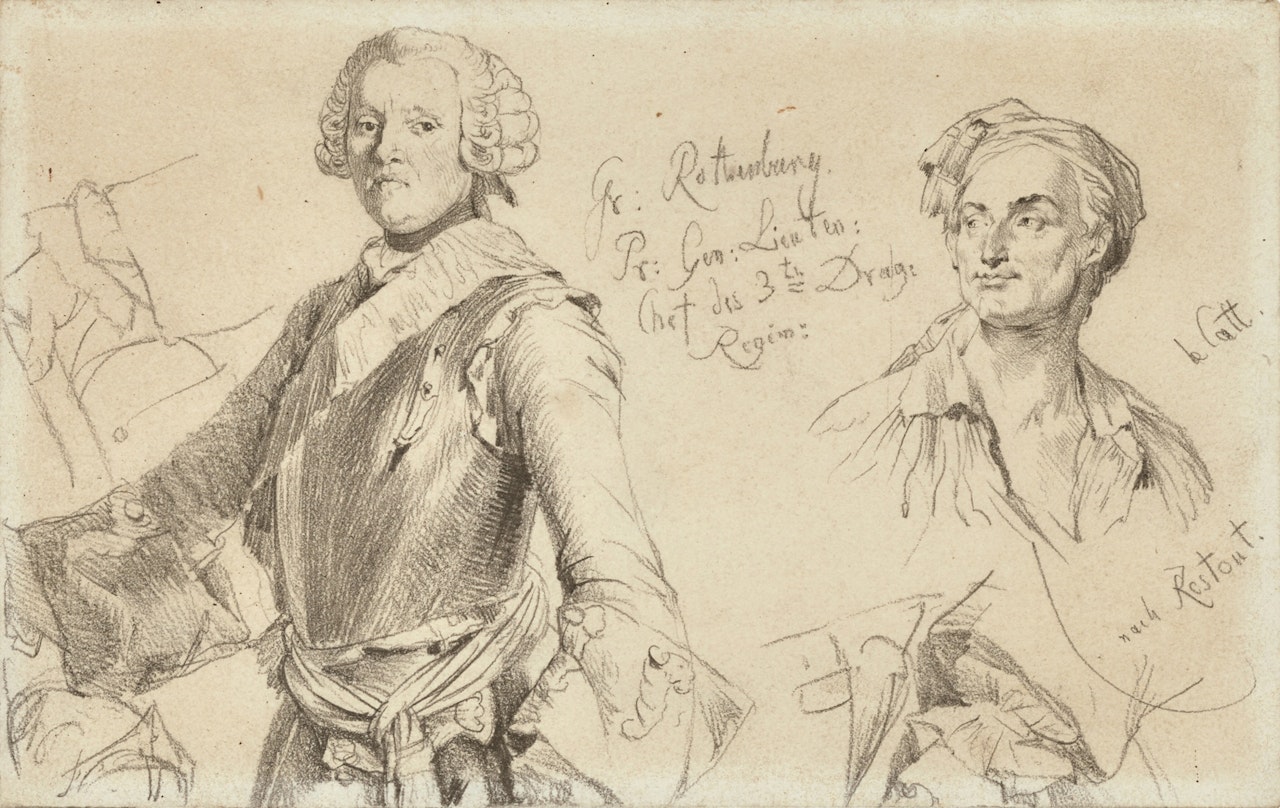 Gr: Rothenburg.
Pr: Gen: Lieuten:
Chef des 3tn Drag:
Regim:
le Catt.
nach Restout.